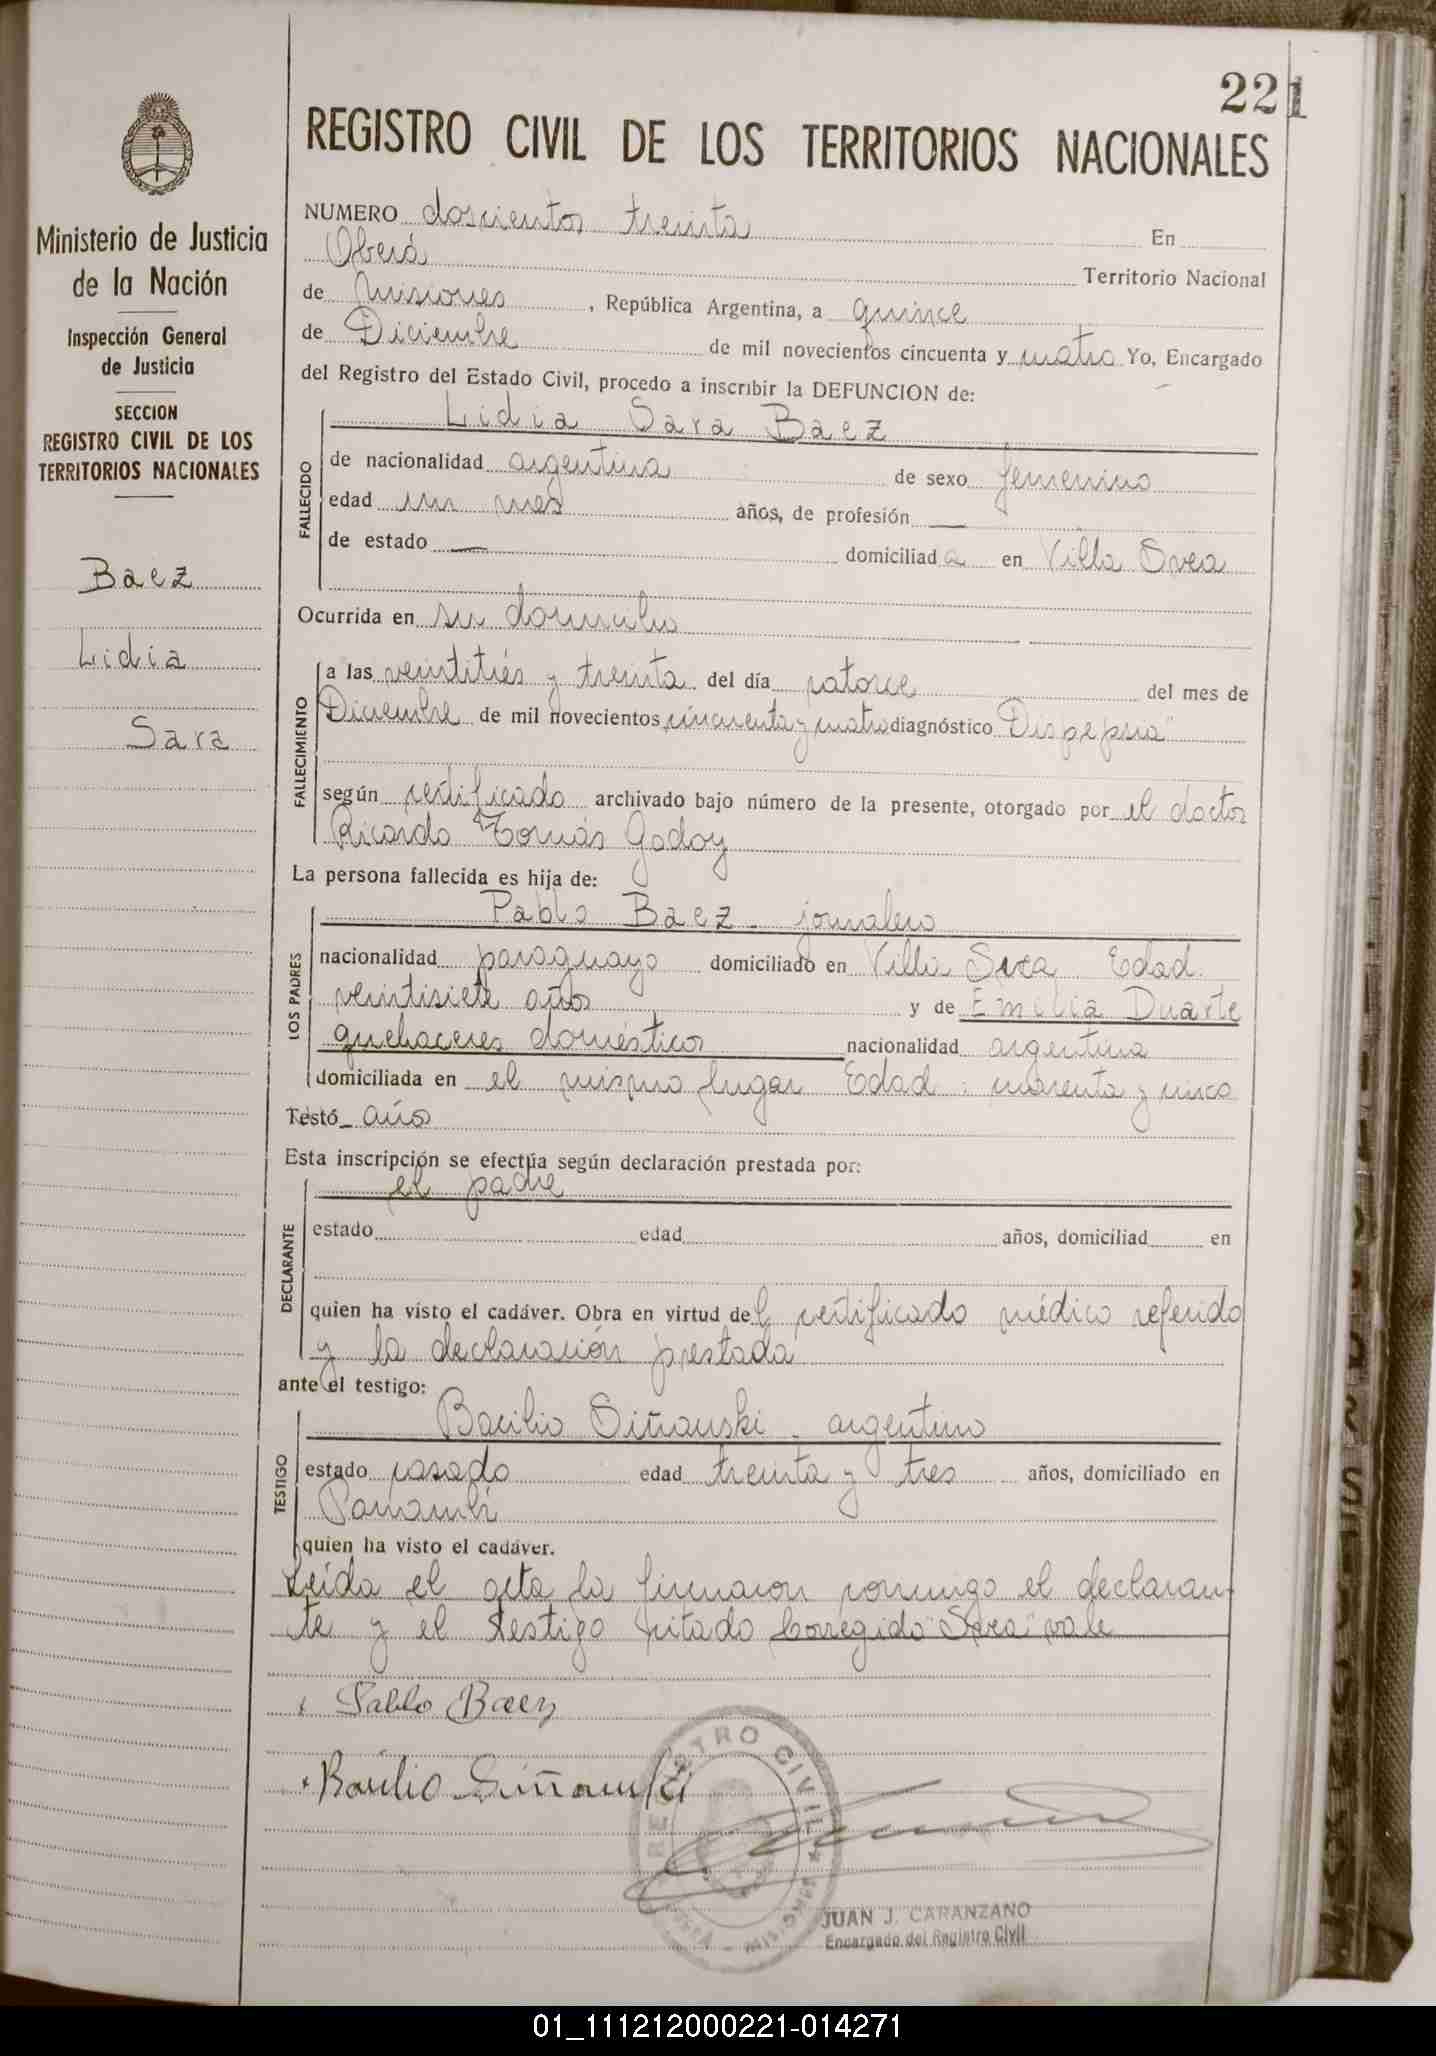 221
REGISTRO CIVIL DE LOS TERRITORIOS NACIONALES
Ministerio de Justicia
de la Nación
Inspección General
de Justicia
SECCION
REGISTRO CIVIL DE LOS
TERRITORIOS NACIONALES
Baez
Lidia
Sara
NUMERO doscientos treinta En
Oberá Territorio Nacional
de Misiones, República Argentina, a quince
de Diciembre de mil novecientos cincuenta y cuatro Yo, Encargado
del Registro del Estado Civil, procedo a inscribir la DEFUNCION de:
Lidia Sara Baez
FALLECIDO
de nacionalidad argentina de sexo femenino
edad un mes años, de profesión —
de estado — domiciliada en Villa Svea
Ocurrida en su domicilio
FALLECIMIENTO
a las veintitrés y treinta del día catorce del mes de
Diciembre de mil novecientos cincuenta y cuatro diagnóstico "Dispepsia"
según certificado archivado bajo número de la presente, otorgado por el doctor
Ricardo Tomás Godoy
La persona fallecida es hija de:
LOS PADRES
Pablo Baez - jornalero
nacionalidad paraguayo domiciliado en Villa Svea Edad
veintisiete años y de Emilia Duarte
quehaceres domésticos nacionalidad argentina
domiciliada en el mismo lugar Edad: cuarenta y cinco
Testó años
Esta inscripción se efectúa según declaración prestada por:
DECLARANTE
el padre
estado edad años, domiciliad en
quien ha visto el cadáver. Obra en virtud del certificado médico referido
y la declaración prestada
ante el testigo:
TESTIGO
Bacilio Siñauski - argentino
estado casado edad treinta y tres años, domiciliado en
Panambí
quien ha visto el cadáver.
Leida el acta la firmaron conmigo el declaran-
te y el testigo citado Corregido "Svea" vale
Pablo Baez
Basilio Siñauski
REGISTRO CIVIL
OBERÁ - MISIONES
JUAN J. CARANZANO
Encargado del Registro Civil
01_111212000221-014271